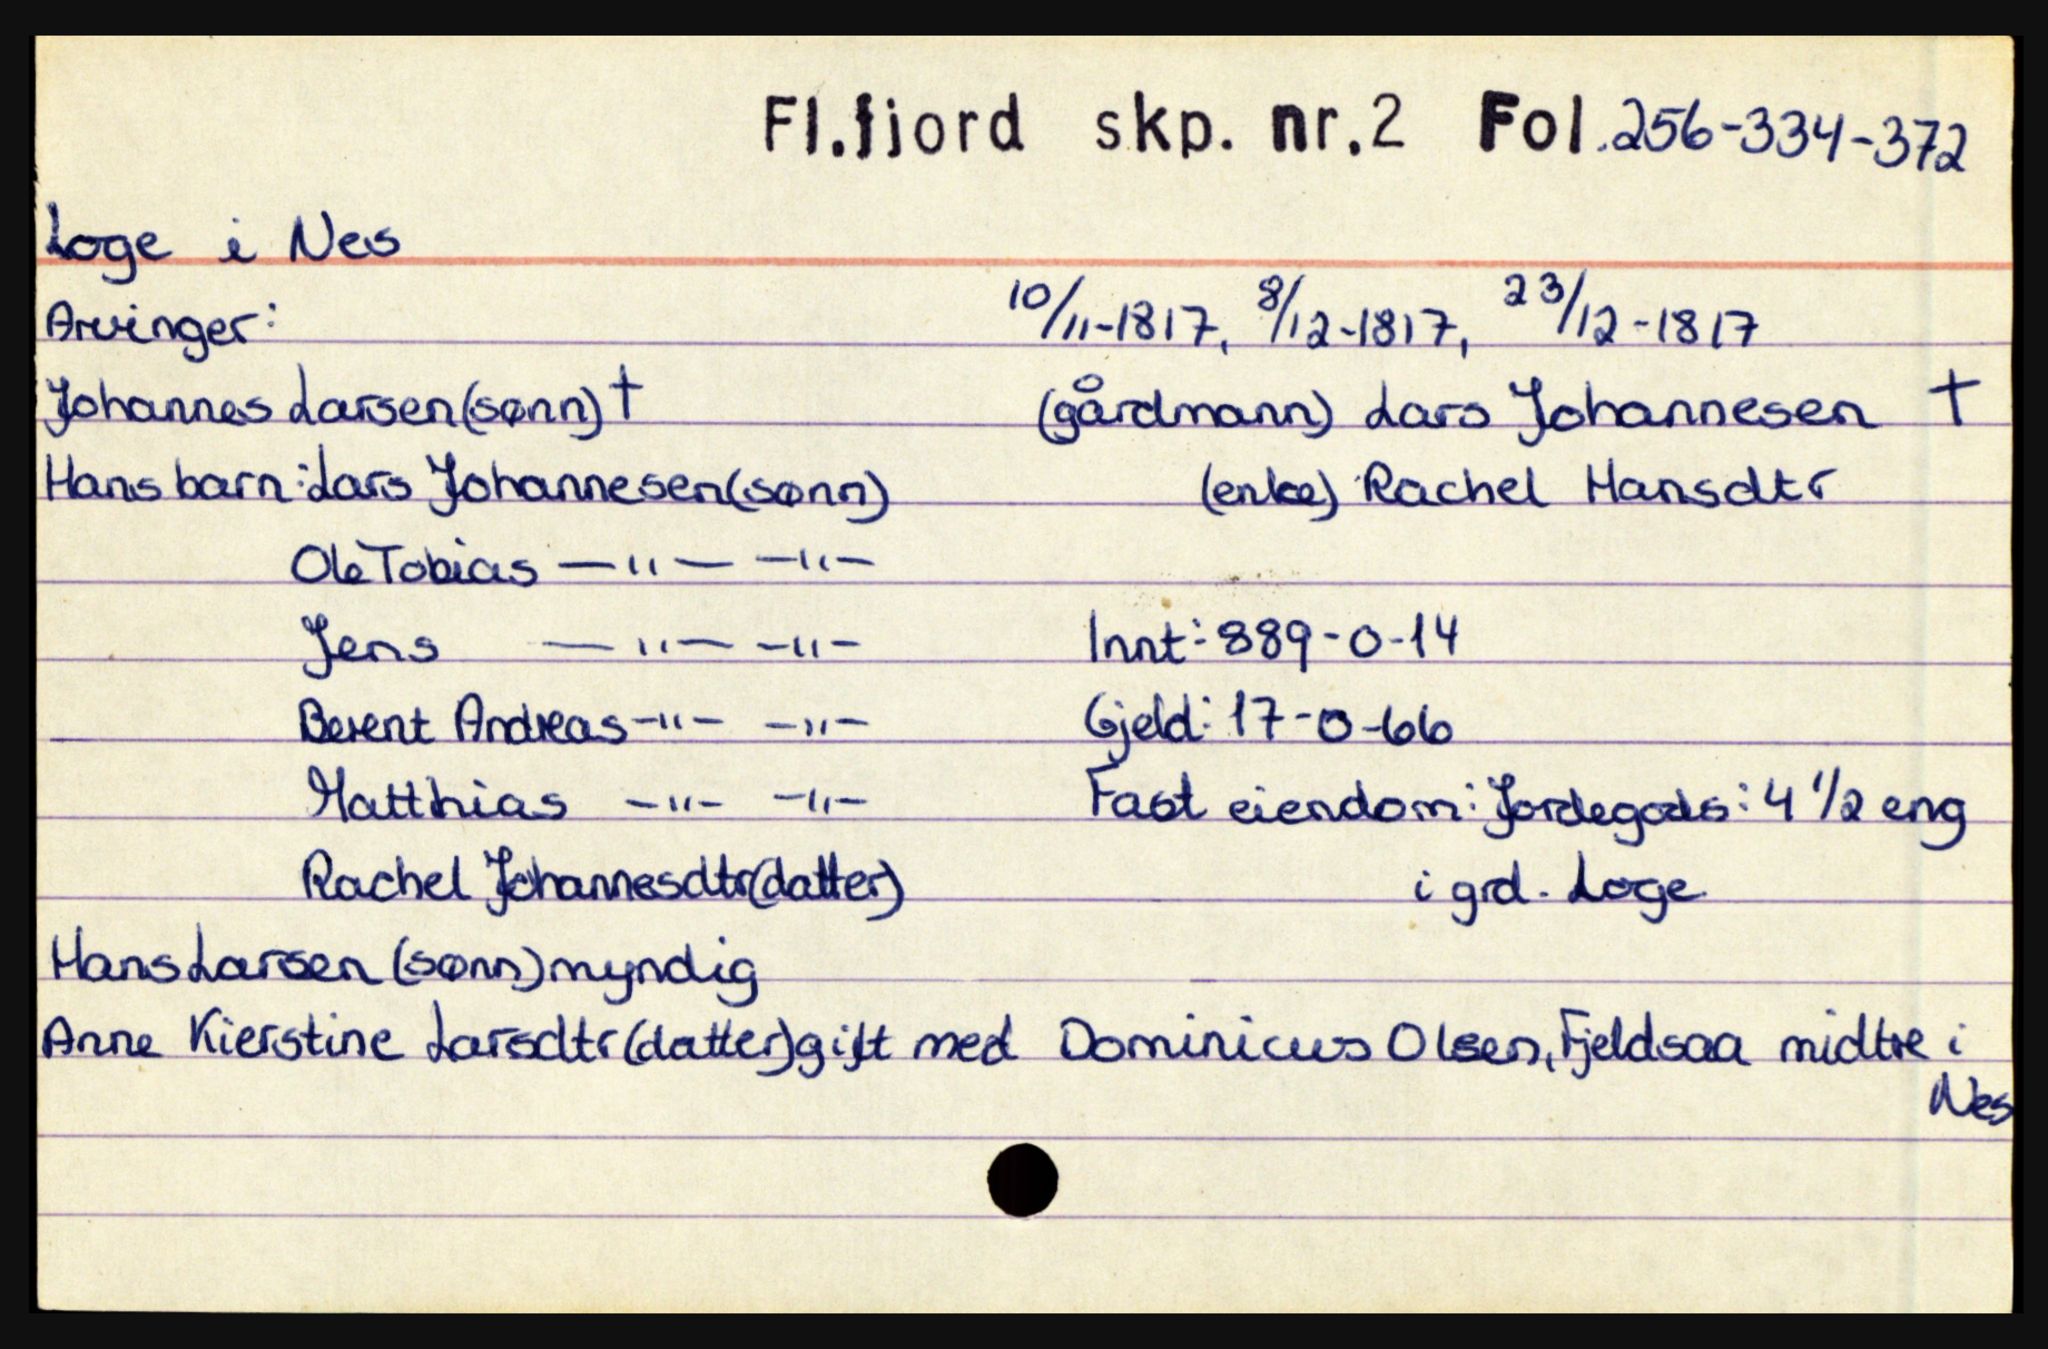 Fl.fjord skp. nr.2 Fol.256-334-372
Loge i Nes
Arvinger: 10/11-1817, 8/12-1817, 23/12-1817
Johannes Larsen(sønn)† (gårdmann) Lars Johannesen †
Hans barn: Lars Johannesen(sønn) (enke) Rachel Hansdtr
Ole Tobias —"— —"—
Jens —"— —"— Innt: 889-0-14
Berent Andreas —"— —"— Gjeld: 17-0-66
Matthias —"— —"— Fast eiendom: Jordegods: 4 1/2 eng
Rachel Johannesdtr(datter) i grd. Loge
Hans Larsen (sønn) myndig
Anne Kierstine Larsdtr(datter) gift med Dominicus Olsen, Fjeldsaa midtre i
Nes